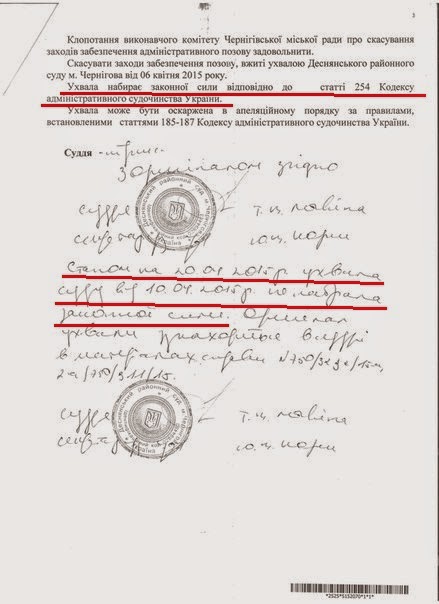 3
Клопотання виконавчого комітету Чернігівської міської ради про скасування
заходів забезпечення адміністративного позову задовольнити.
Скасувати заходи забезпечення позову, вжиті ухвалою Деснянського районного
суду м. Чернігова від 06 квітня 2015 року.
Ухвала набирає законної сили відповідно до статті 254 Кодексу
адміністративного судочинства України.
Ухвала може бути оскаржена в апеляційному порядку за правилами,
встановленими статтями 185-187 Кодексу адміністративного судочинства України.
Суддя
З оригіналом згідно
суддя
секретар
Станом на 20.04.2015р. ухвала
суду від 10.04.2015р. не набрала
законної сили. Оригінал
ухвали знаходиться в суді
в матеріалах справи
суддя
секретар
*2525*5132070*1*1*